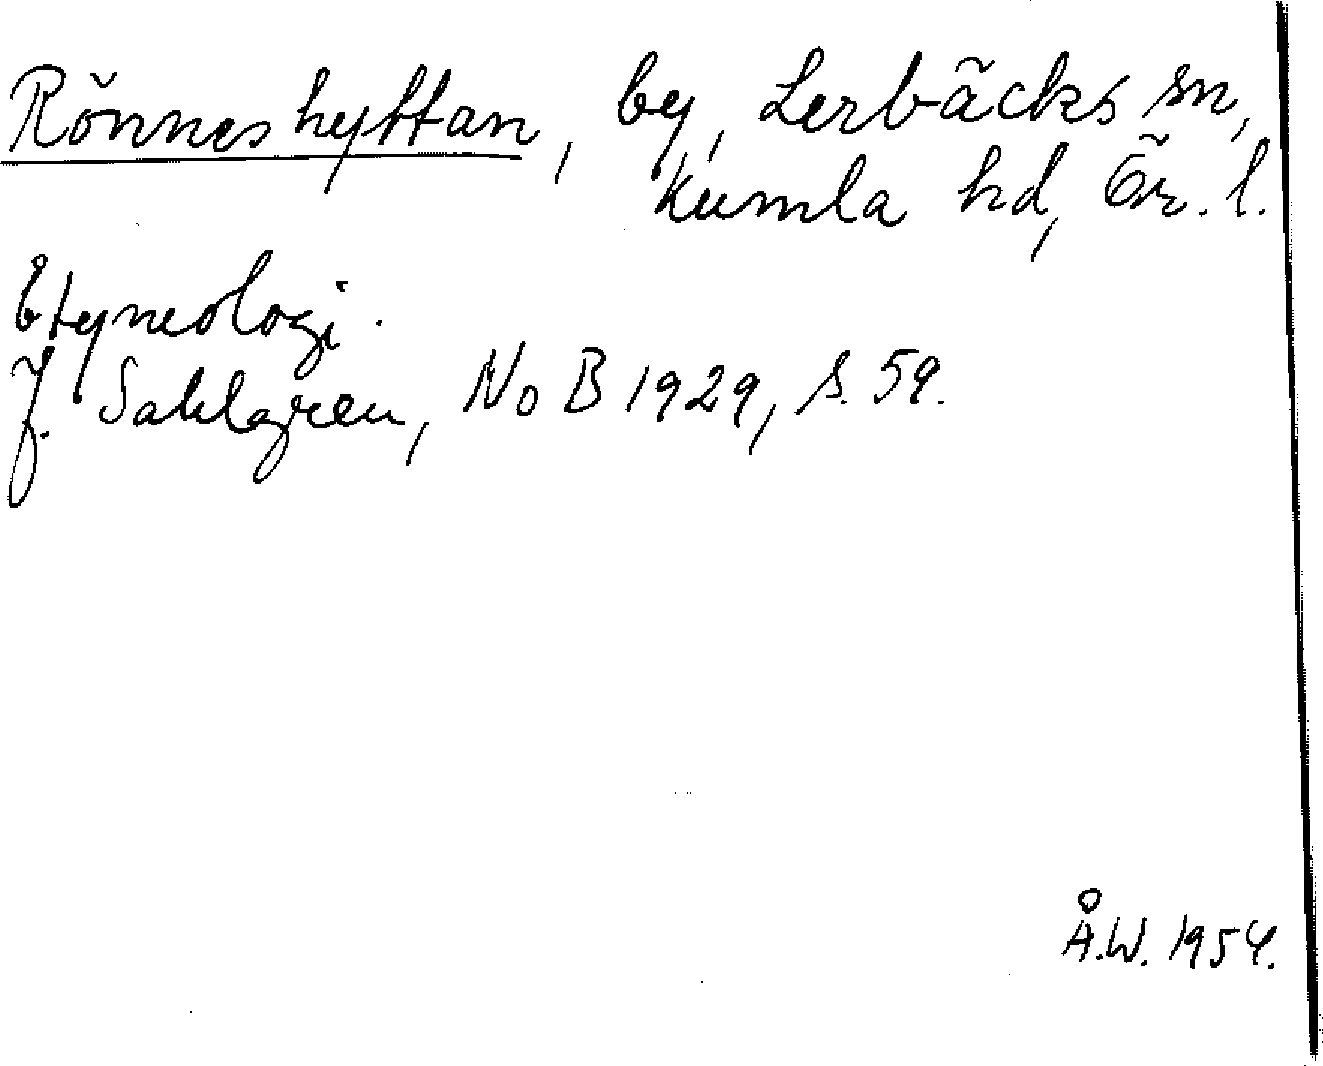 Rönneshyttan, by, Lerbäcks sn,
Kumla hd, Ör. l.
Etymologi.
J. Sahlgren, NoB 1929, s. 59.
Å.W. 1954.